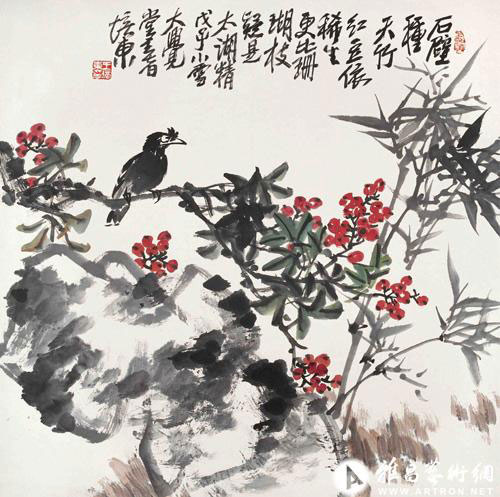 石壁
種
天竹
红豆依
稀生
更比珊
瑚枝
疑是
太湖精
戊子小雪
大覺
堂主者
培東
雅昌藝術網
WWW.ARTRON.NET